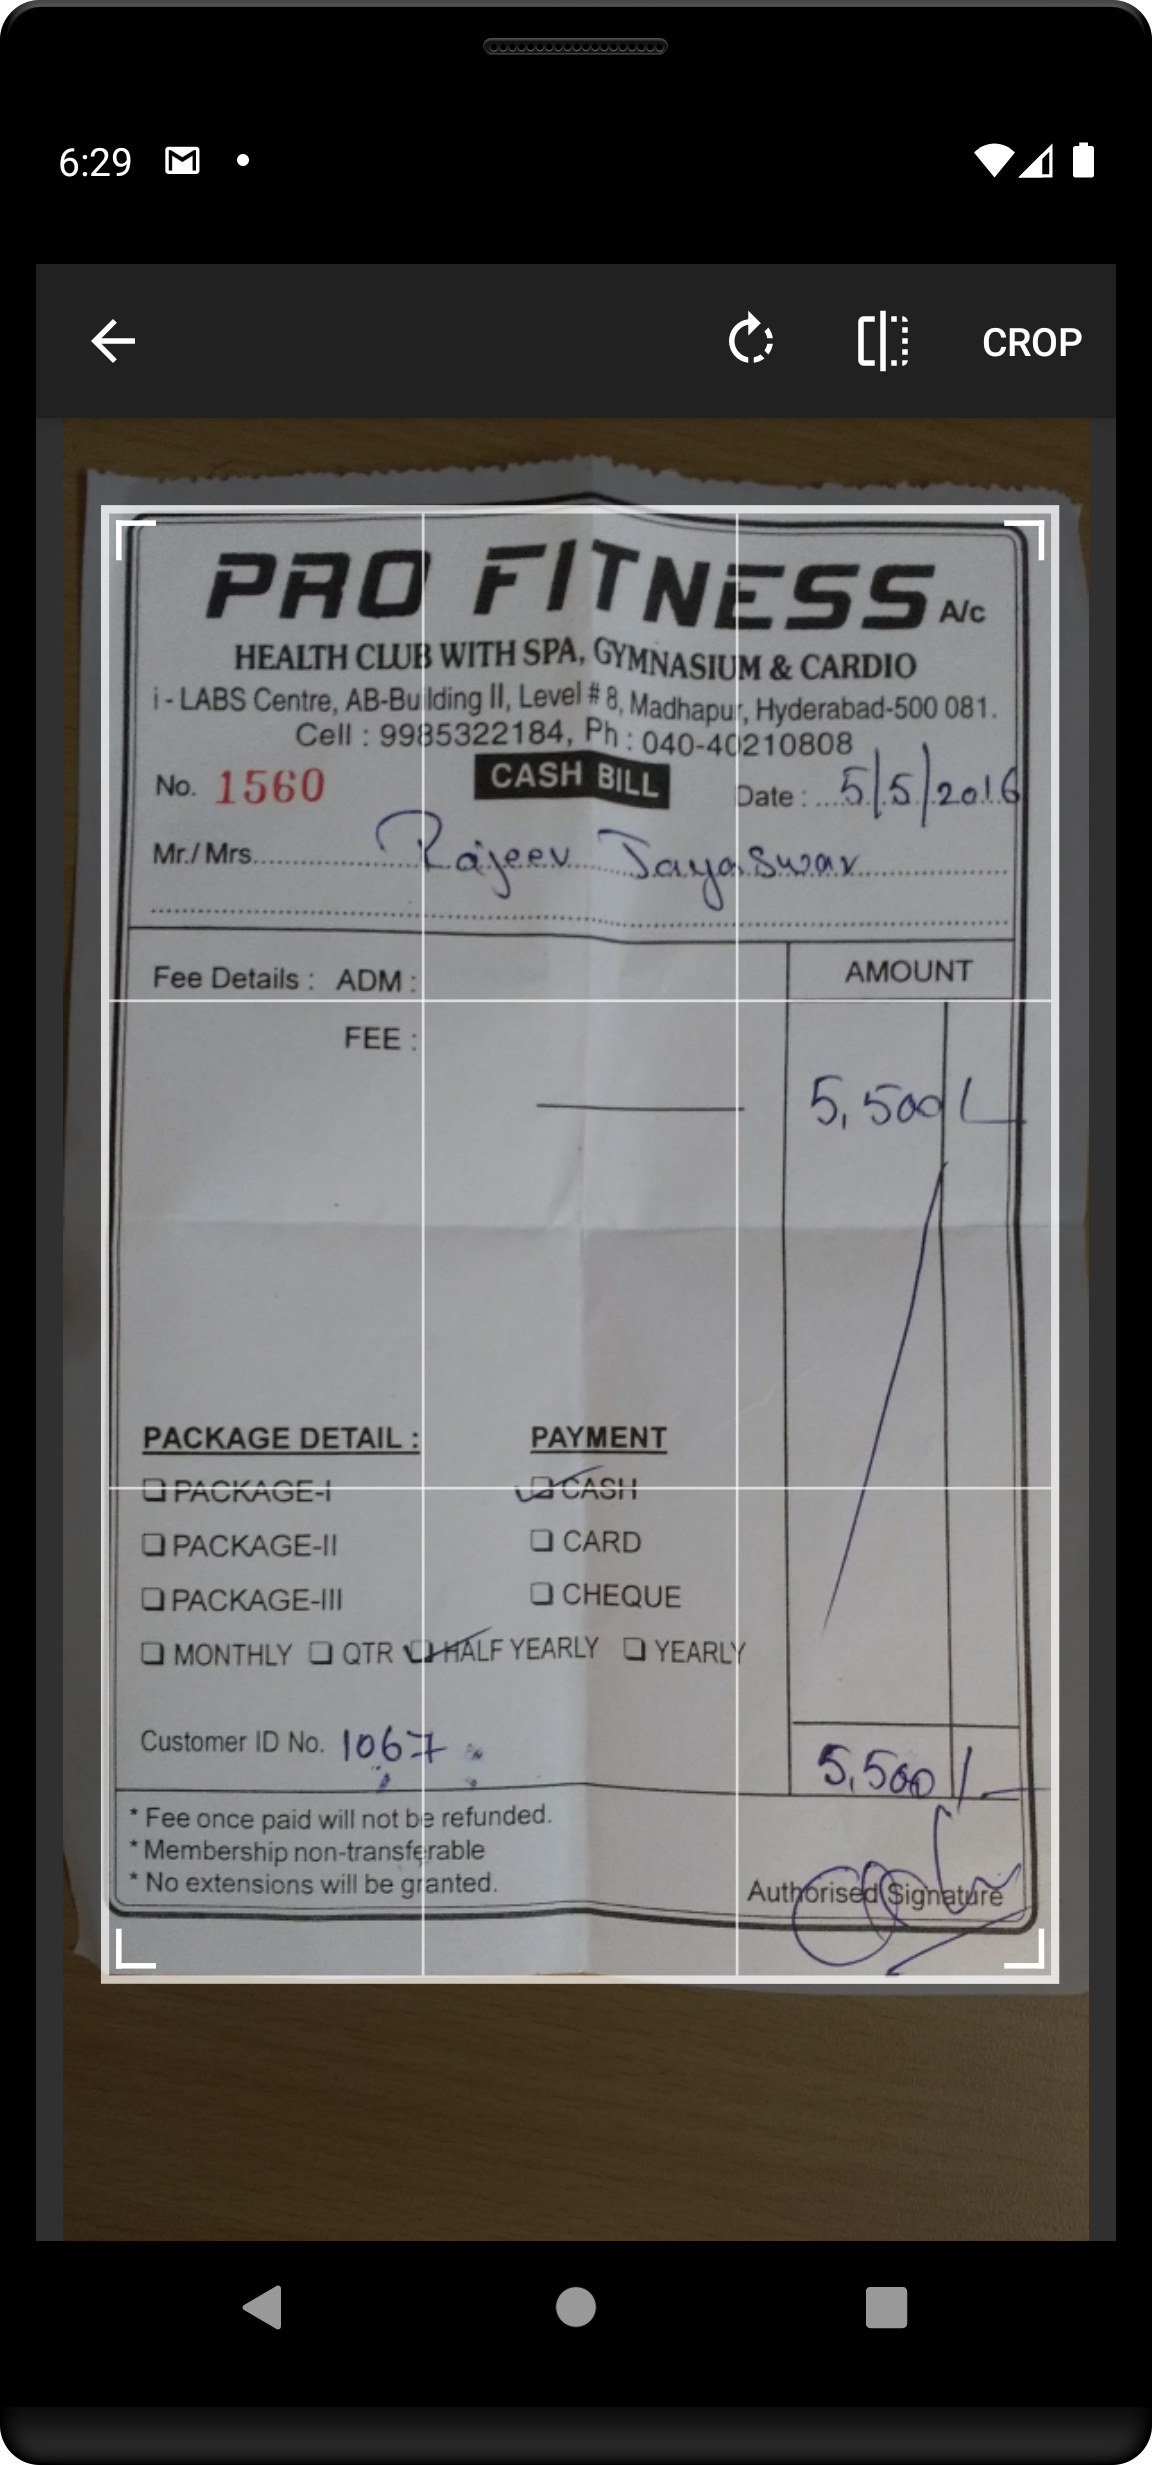 6:29
CROP
PRO FITNESS A/c
HEALTH CLUB WITH SPA, GYMNASIUM & CARDIO
i - LABS Centre, AB-Building II, Level # 8, Madhapur, Hyderabad-500 081.
Cell : 9985322184, Ph : 040-40210808
No. 1560 CASH BILL Date : 5/5/2016
Mr./ Mrs. Rajeev Jayaswar
Fee Details : ADM : AMOUNT
FEE :
5,500/-
PACKAGE DETAIL : PAYMENT
PACKAGE-I CASH
PACKAGE-II CARD
PACKAGE-III CHEQUE
MONTHLY QTR HALF YEARLY YEARLY
Customer ID No. 1067
5,500/-
* Fee once paid will not be refunded.
* Membership non-transferable
* No extensions will be granted.
Authorised Signature